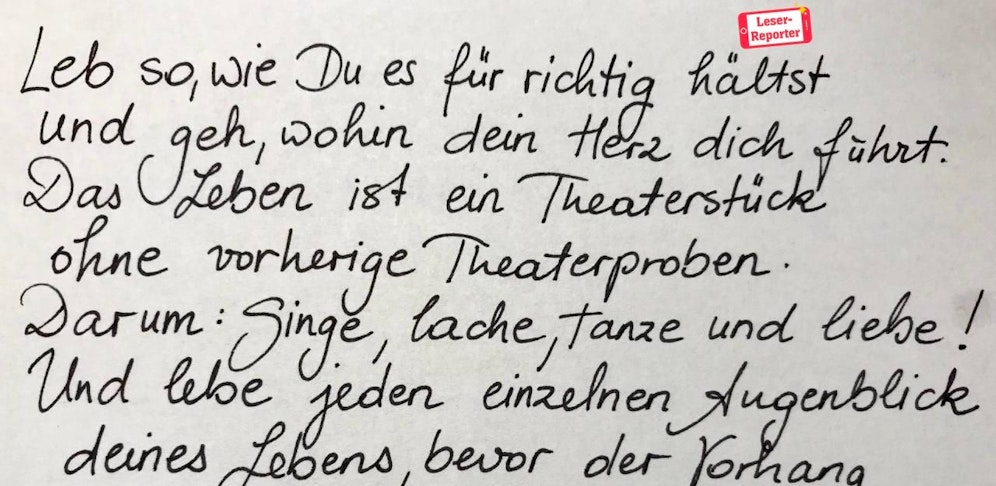 Leser-
Reporter
Leb so, wie Du es für richtig hältst
und geh, wohin dein Herz dich führt.
Das Leben ist ein Theaterstück
ohne vorherige Theaterproben.
Darum: Singe, lache, tanze und liebe!
Und lebe jeden einzelnen Augenblick
deines Lebens, bevor der Vorhang